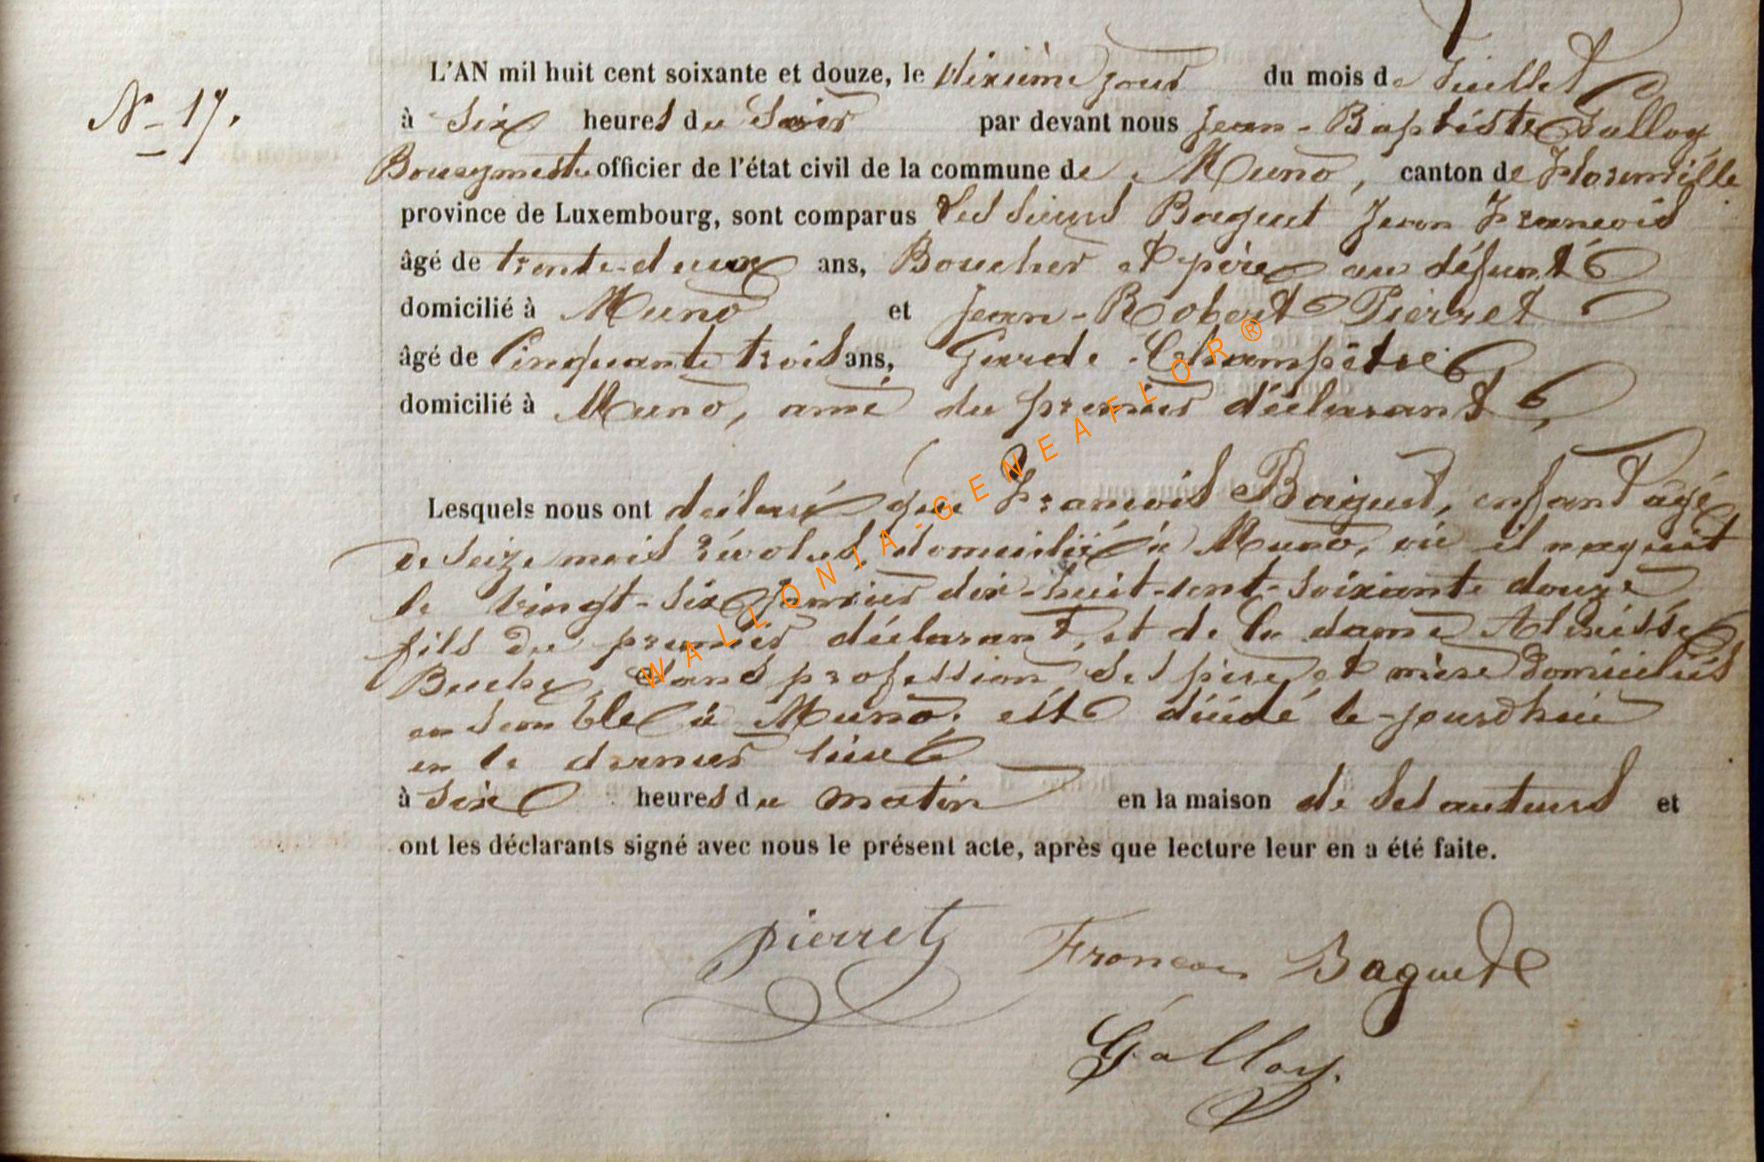 N° 17.
L'AN mil huit cent soixante et douze, le dixième jour du mois de Juillet
à Six heures du Soir par devant nous Jean-Baptiste Galloy
Bourgmestre officier de l'état civil de la commune de Muno, canton de Florenville
province de Luxembourg, sont comparus Les Sieurs Baguet Jean François
âgé de trente-deux ans, Boucher et père au défunt
domicilié à Muno et Jean-Robert Pierret
âgé de Cinquante trois ans, Garde-Champêtre
domicilié à Muno, ami du premier déclarant,
Lesquels nous ont déclaré que François Baguet, enfant âgé
de seize mois révolus, domicilié à Muno, où il naquit
le vingt-six Janvier dix-huit-cent-soixante douze
fils du premier déclarant, et de la dame
Buche, Sans profession, Ses père et mère domiciliés
ensemble à Muno, est décédé le-jourdhui
en le dernier lieu
à Six heures du matin en la maison de Ses auteurs et
ont les déclarants signé avec nous le présent acte, après que lecture leur en a été faite.
pierret François Baguet
Galloy.
WALLONIA-GENEAFLOR®